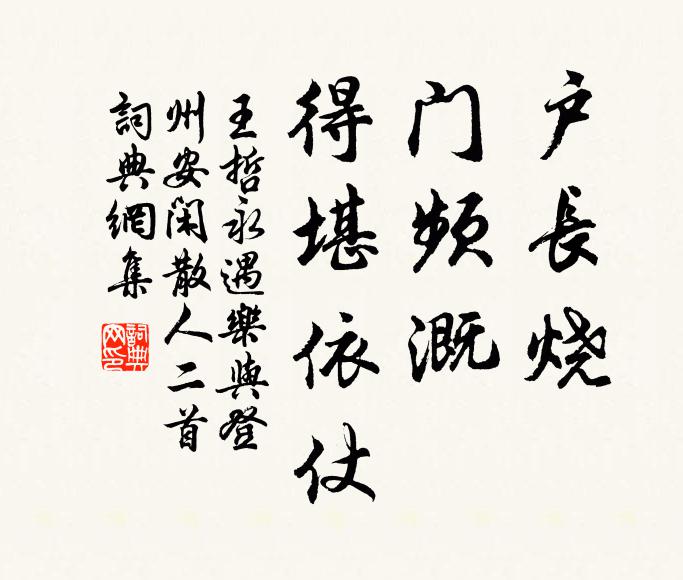 户長烧
门频溉
得堪依仗
王哲永遇樂與登
州安閑散人二首
詞典網集
詞典网印